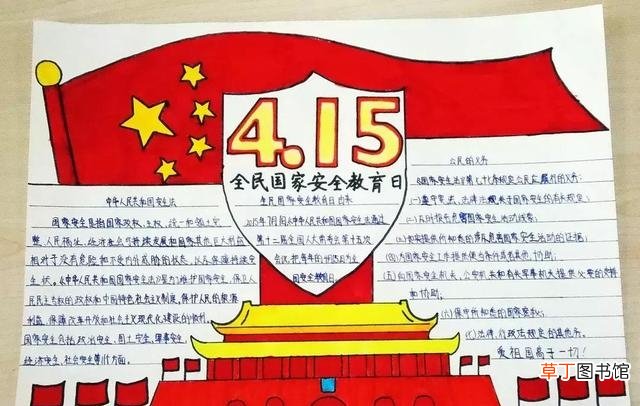 4.15
全民国家安全教育日
中华人民共和国国家安全法
国家安全是指国家政权、主权、统一和领土完
整、人民福祉、经济社会可持续发展和国家其他重大利益
相对处于没有危险和不受内外威胁的状态，以及保障持续安
全状态。《中华人民共和国国家安全法》是为了维护国家安全，保卫人
民民主专政的政权和中国特色社会主义制度，保护人民的根本
利益，保障改革开放和社会主义现代化建设的顺利
国家安全包括政治安全、国土安全、军事安全、
经济安全、社会安全等11个方面。
全民国家安全教育日由来
2015年7月1日《中华人民共和国国家安全法》通过
第十二届全国人大常委会第十五次
会议，把每年的4月15日为全民
国家安全教育日
公民的义务
《国家安全法》第七十七条规定公民应履行的义务：
(一)遵守宪法、法律法规关于国家安全的有关规定；
(二)及时报告危害国家安全活动线索；
(三)如实提供所知悉的涉及危害国家安全活动的证据；
(四)为国家安全工作提供便利条件或者其他协助；
(五)向国家安全机关、公安机关和有关军事机关提供必要的支持
和协助；
(六)保守所知悉的国家秘密；
(七)法律、行政法规规定的其他义务。
爱祖国高于一切！
草丁图书馆